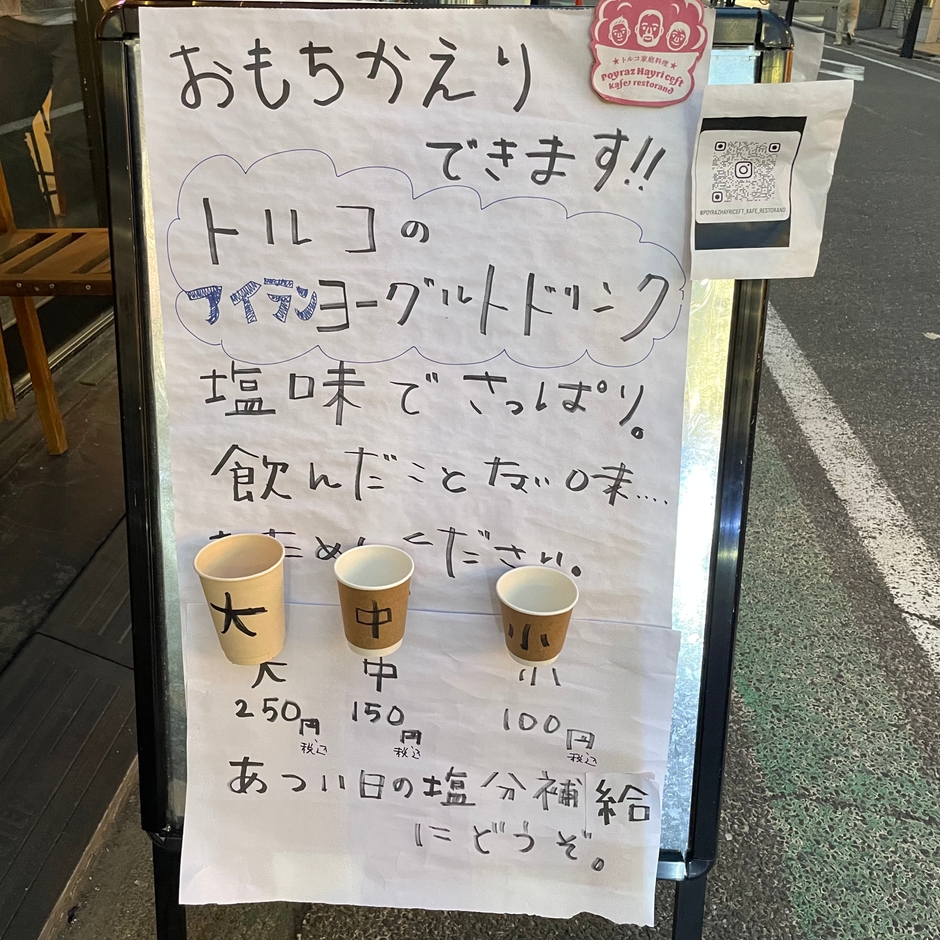 おもちかえり
できます!!
★トルコ家庭料理★
Poyraz Hayriceft
kafe restorand
@POYRAZHAYRICEFT_KAFE_RESTORAND
トルコの
アイラン ヨーグルトドリンク
塩味でさっぱり。
飲んだことない味....
おためしください。
大 中 小
大 中 小
250円 150円 100円
税込 税込 税込
あつい日の塩分補給
にどうぞ。